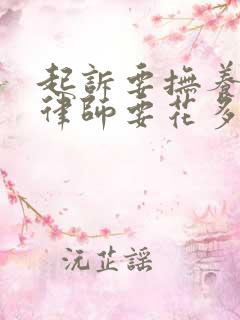 起訴要撫養
律師要花多
沅芷謠